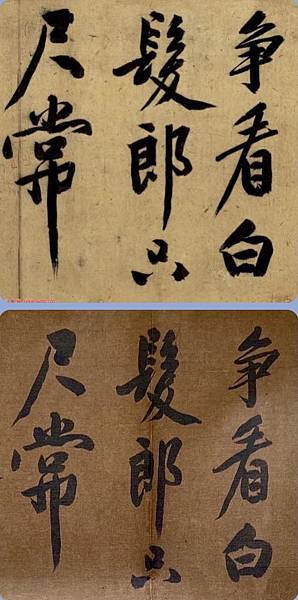 争看白
髮郎只
尺常
争看白
髮郎只
尺常